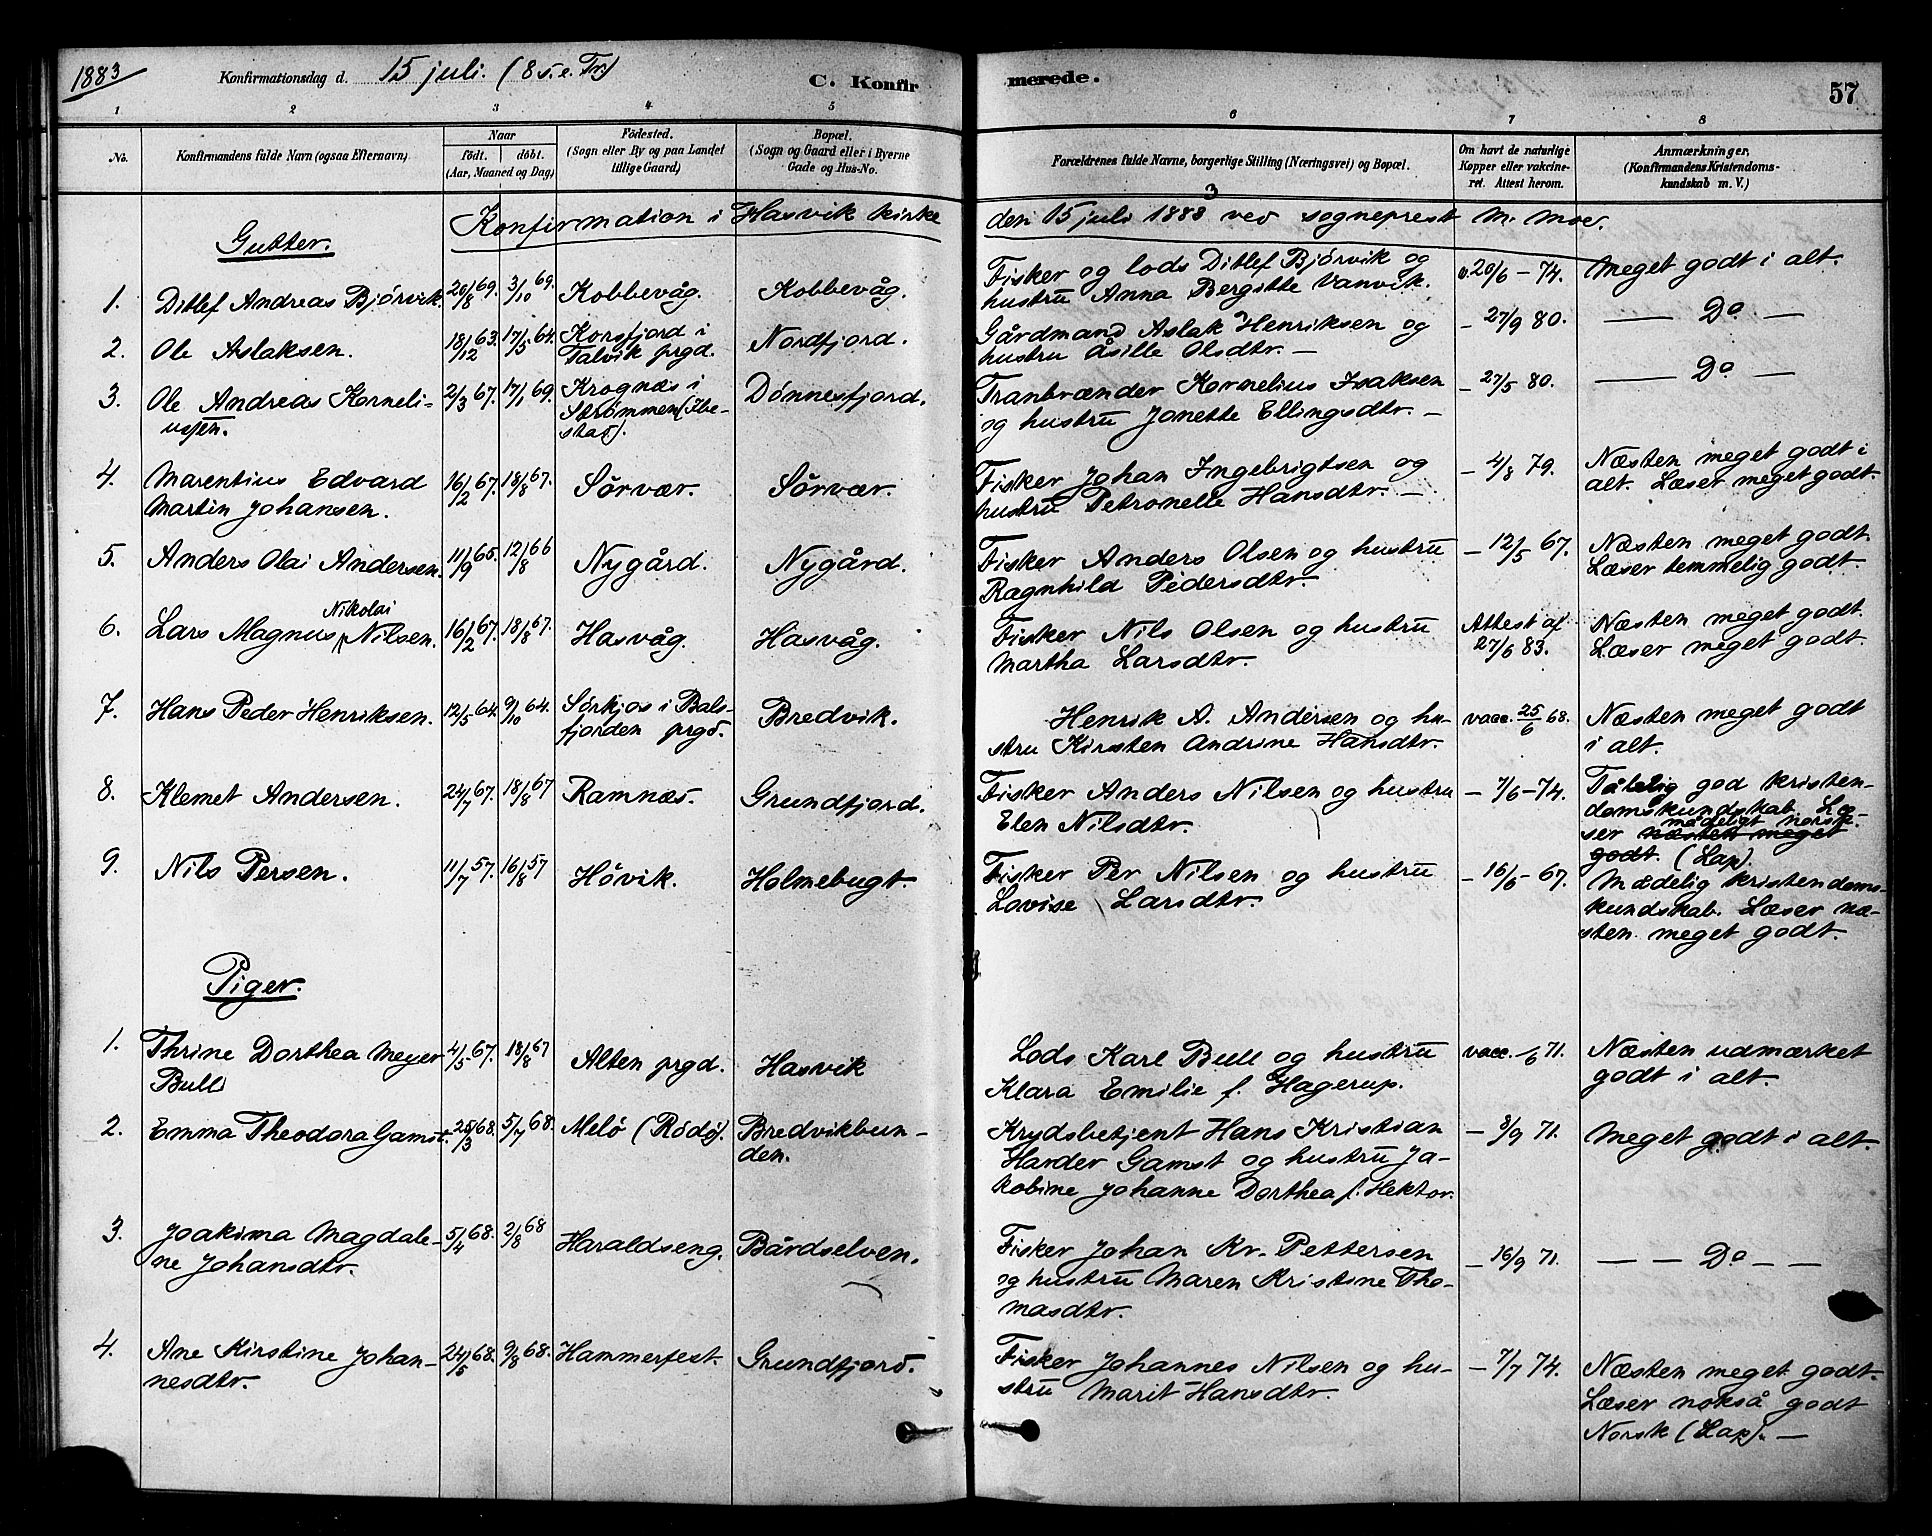 1883
Konfirmationsdag d. 15 juli. (8 s. e. Tr.)
C. Konfirmerede.
57
1 2 3 4 5 6 7 8
No.
Konfirmandens fulde Navn (ogsaa Efternavn)
Naar
födt. döbt.
(Aar, Maaned og Dag)
Födested.
(Sogn eller By og paa Landet
tillige Gaard)
Bopæl.
(Sogn og Gaard eller i Byerne
Gade og Hus-No.
Forældrenes fulde Navne, borgerlige Stilling (Næringsvei) og Bopæl.
Om havt de naturlige
Kopper eller vakcine-
ret. Attest herom.
Anmærkninger,
(Konfirmandens Kristendoms-
kundskab m. V.)
Konfirmation i Hasvik kirke den 15 juli 1883 ved sogneprest M. Moe.
Gutter.
1. Ditlef Andreas Bjørvik. 20/8 69. 3/10 69. Kobbevåg. Kobbevåg. Fisker og lods Ditlef Bjørvik og
hustru Anna Bergitte Vanvik. v. 20/6 - 74. Meget godt i alt.
2. Ole Aslaksen. 18/12 63. 17/5 64. Korsfjord i
Talvik prgd. Nordfjord. Gårdmand Aslak Henriksen og
hustru Åsille Olsdtr. — - 27/9 80. — Do —
3. Ole Andreas Korneli-
ussen. 2/3 67. 17/1 69. Krognæs i
Strømmen (Ibe-
stad). Dønnesfjord. Tranbrænder Kornelius Isaksen
og hustru Jonette Ellingsdtr. — - 27/5 80. — Do —
4. Marentius Edvard
Martin Johansen. 16/2 67. 18/8 67. Sørvær. Sørvær. Fisker Johan Ingebrigtsen og
hustru Petronelle Hansdtr. — - 4/8 79. Næsten meget godt i
alt. Læser meget godt.
5. Anders Olai Andersen. 11/9 65. 12/8 66 Nygård. Nygård. Fisker Anders Olsen og hustru
Ragnhild Pedersdtr. - 12/5 67. Næsten meget godt.
Læser temmelig godt.
6. Lars Magnus Nikolai Nilsen. 16/2 67. 18/8 67. Hasvåg. Hasvåg. Fisker Nils Olsen og hustru
Martha Larsdtr. Attest af
27/6 83. Næsten meget godt.
Læser meget godt.
7. Hans Peder Henriksen. 12/5 64 9/10 64. Sørkjos i Bals-
fjorden prgd. Bredvik. Henrik A. Andersen og hu-
stru Kirsten Andrine Hansdtr. vacc. 25/6 68. Næsten meget godt
i alt.
8. Klemet Andersen. 24/7 67. 18/8 67 Ramnæs. Grundfjord. Fisker Anders Nilsen og hustru
Elen Nilsdtr. - 7/6 - 74. Tålelig god kristen-
domskundskab. Læ-
ser mådeligt norsk. næsten meget
godt. (Lap).
9. Nils Persen. 11/7 57. 16/8 57 Høvik. Holmebugt. Fisker Per Nilsen og hustru
Lovise Larsdtr. - 16/6 - 67. Mådelig kristendoms-
kundskab. Læser næ-
sten meget godt.
Piger.
1. Thrine Dorthea Meyer
Bull 4/5 67. 18/8 67 Alten prgd. Hasvik Lods Karl Bull og hustru
Klara Emilie f. Hagerup. vacc. -/6 71. Næsten udmærket
godt i alt.
2. Emma Theodora Gamst. 25/3 68. 5/7 68. Melø (Rødø). Bredvikbun-
den. Krydsbetjent Hans Kristian
Harder Gamst og hustru Ja-
kobine Johanne Dorthea f. Hektor. - 8/9 71. Meget godt i alt.
3. Joakima Magdale-
ne Johansdtr. 5/4 68. 2/8 68 Haraldseng. Bårdselven. Fisker Johan Kr. Pettersen
og hustru Maren Kristine Tho-
masdtr. - 16/9 71. — — Do — —
4. Ane Kirstine Johan-
nesdtr. 24/5 68. 9/8 68. Hammerfest. Grundfjord. Fisker Johannes Nilsen og hu-
stru Marit Hansdtr. - 7/7 74. Næsten meget godt.
Læser nokså godt
Norsk (Lap). —